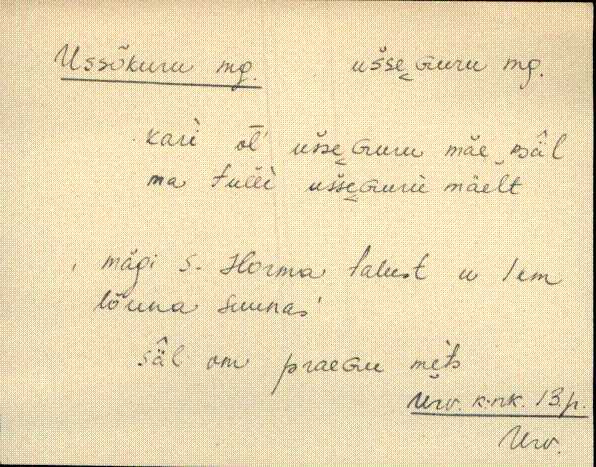 Ussõkuru mg. ušsе̬Guru mg.
kari ōl' ušsе̬Guru mäe̬ pä̂l
ma tulli ušsе̬Guru mäelt
mägi s. Horma talust u 1 km
lõuna suunas
sä̂l om praeGu mets
Urv. k.nk. 13.p.
Urv.